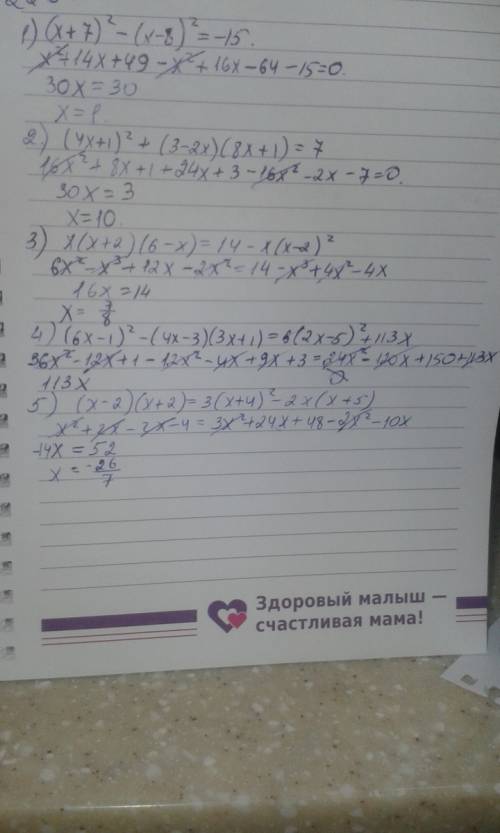 1) (x+7)² - (x-8)² = -15.
x²+14x+49-x²+16x-64-15=0.
30x=30
x=1.
2) (4x+1)² + (3-2x)(8x+1) = 7
16x²+8x+1+24x+3-16x²-2x-7=0.
30x=3
x=10.
3) x(x+2)(6-x)=14-x(x-2)²
6x²-x³+12x-2x²=14-x³+4x²-4x
16x=14
x=7/8
4) (6x-1)²-(4x-3)(3x+1)=6(2x-5)²+113x
36x²-12x+1-12x²-4x+9x+3=24x²-120x+150+113x
113x
5) (x-2)(x+2)=3(x+4)²-2x(x+5)
x²+2x-2x-4=3x²+24x+48-2x²-10x
-14x=52
x=-26/7
Здоровый малыш —
счастливая мама!